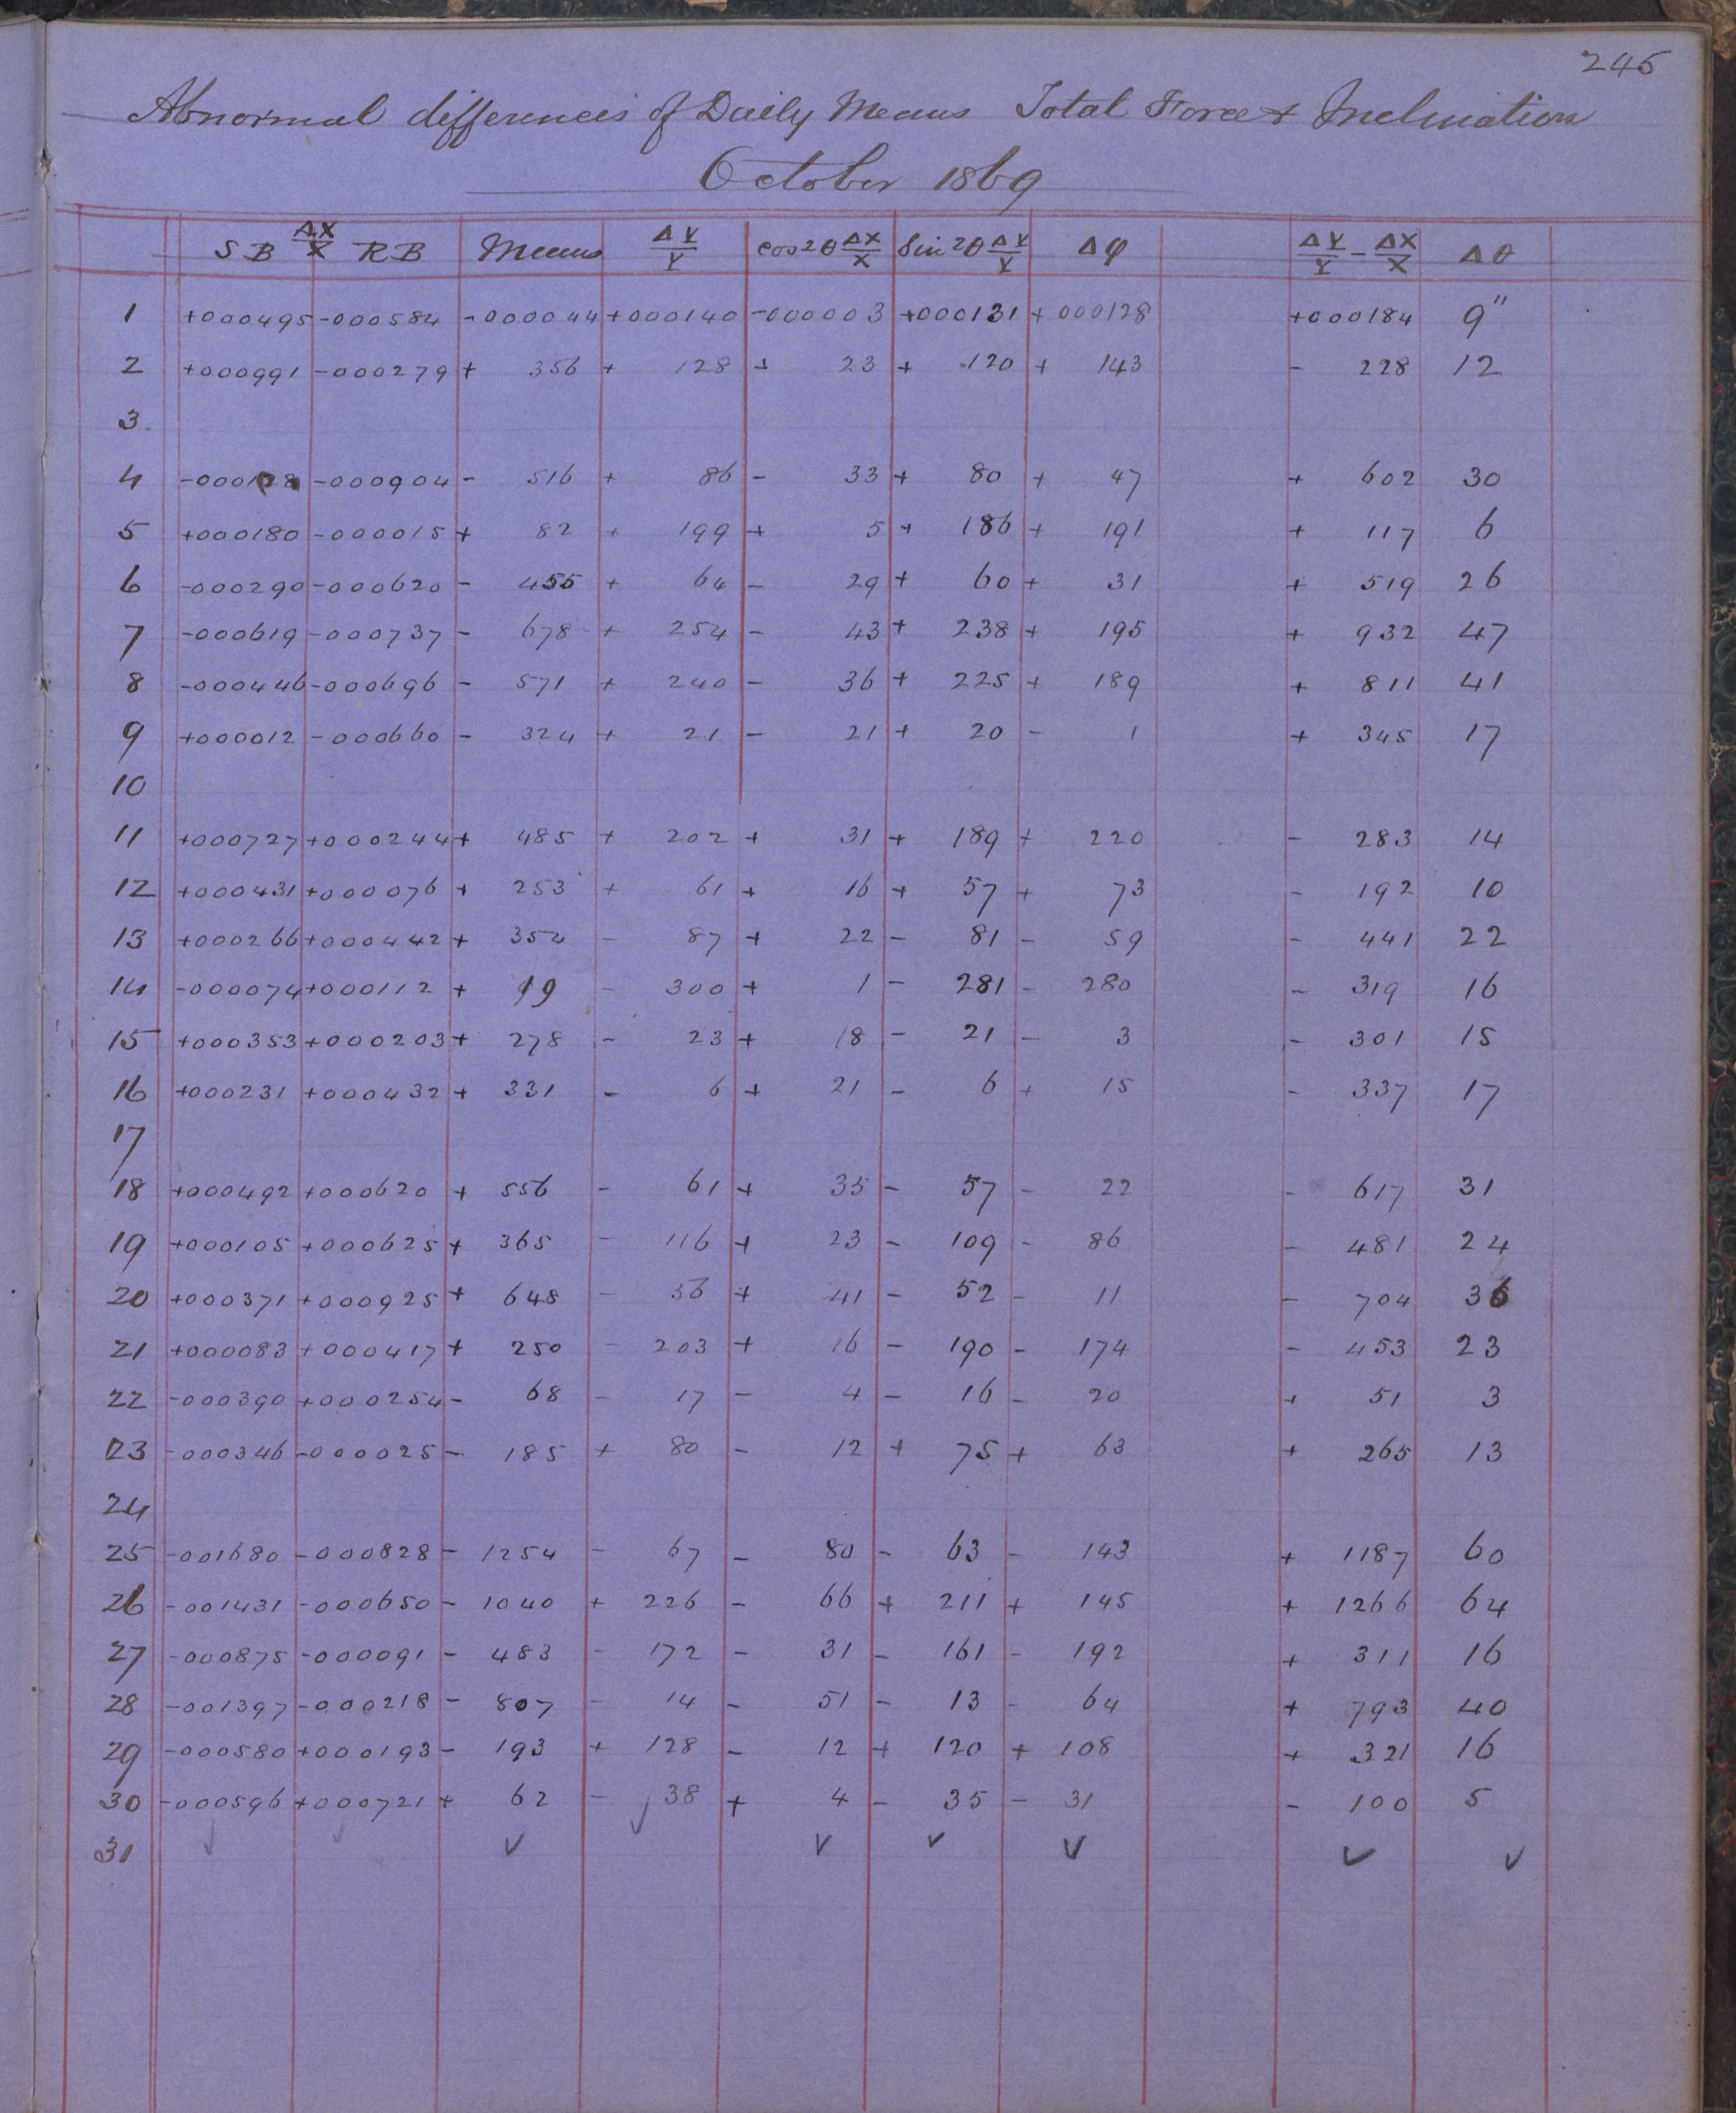 245
Abnormal differences of Daily Means Total Force & Inclination
October 1869
SB ΔX/X RB Means ΔY/Y cos²θ ΔX/X Sin²θ ΔY/Y Δφ ΔY/Y - ΔX/X Δθ
1 +000495 -000584 -000044 +000140 -000003 +000131 +000128 +000184 9"
2 +000991 -000279 + 356 + 128 + 23 + 120 + 143 - 228 12
3
4 -000128 -000904 - 516 + 86 - 33 + 80 + 47 + 602 30
5 +000180 -000015 + 82 + 199 + 5 + 186 + 191 + 117 6
6 -000290 -000620 - 455 + 64 - 29 + 60 + 31 + 519 26
7 -000619 -000737 - 678 + 254 - 43 + 238 + 195 + 932 47
8 -000446 -000696 - 571 + 240 - 36 + 225 + 189 + 811 41
9 +000012 -000660 - 324 + 21 - 21 + 20 - 1 + 345 17
10
11 +000727 +000244 + 485 + 202 + 31 + 189 + 220 - 283 14
12 +000431 +000076 + 253 + 61 + 16 + 57 + 73 - 192 10
13 +000266 +000442 + 354 - 87 + 22 - 81 - 59 - 441 22
14 -000074 +000112 + 19 - 300 + 1 - 281 - 280 - 319 16
15 +000353 +000203 + 278 - 23 + 18 - 21 - 3 - 301 15
16 +000231 +000432 + 331 - 6 + 21 - 6 + 15 - 337 17
17
18 +000492 +000620 + 556 - 61 + 35 - 57 - 22 - 617 31
19 +000105 +000625 + 365 - 116 + 23 - 109 - 86 - 481 24
20 +000371 +000925 + 648 - 56 + 41 - 52 - 11 - 704 36
21 +000083 +000417 + 250 - 203 + 16 - 190 - 174 - 453 23
22 -000390 +000254 - 68 - 17 - 4 - 16 - 20 + 51 3
23 -000346 -000025 - 185 + 80 - 12 + 75 + 63 + 265 13
24
25 -001680 -000828 - 1254 - 67 - 80 - 63 - 143 + 1187 60
26 -001431 -000650 - 1040 + 226 - 66 + 211 + 145 + 1266 64
27 -000875 -000091 - 483 - 172 - 31 - 161 - 192 + 311 16
28 -001397 -000218 - 807 - 14 - 51 - 13 - 64 + 793 40
29 -000580 +000193 - 193 + 128 - 12 + 120 + 108 + 321 16
30 -000596 +000721 + 62 - 38 + 4 - 35 - 31 - 100 5
31 ✓ ✓ ✓ ✓ ✓ ✓ ✓ ✓ ✓